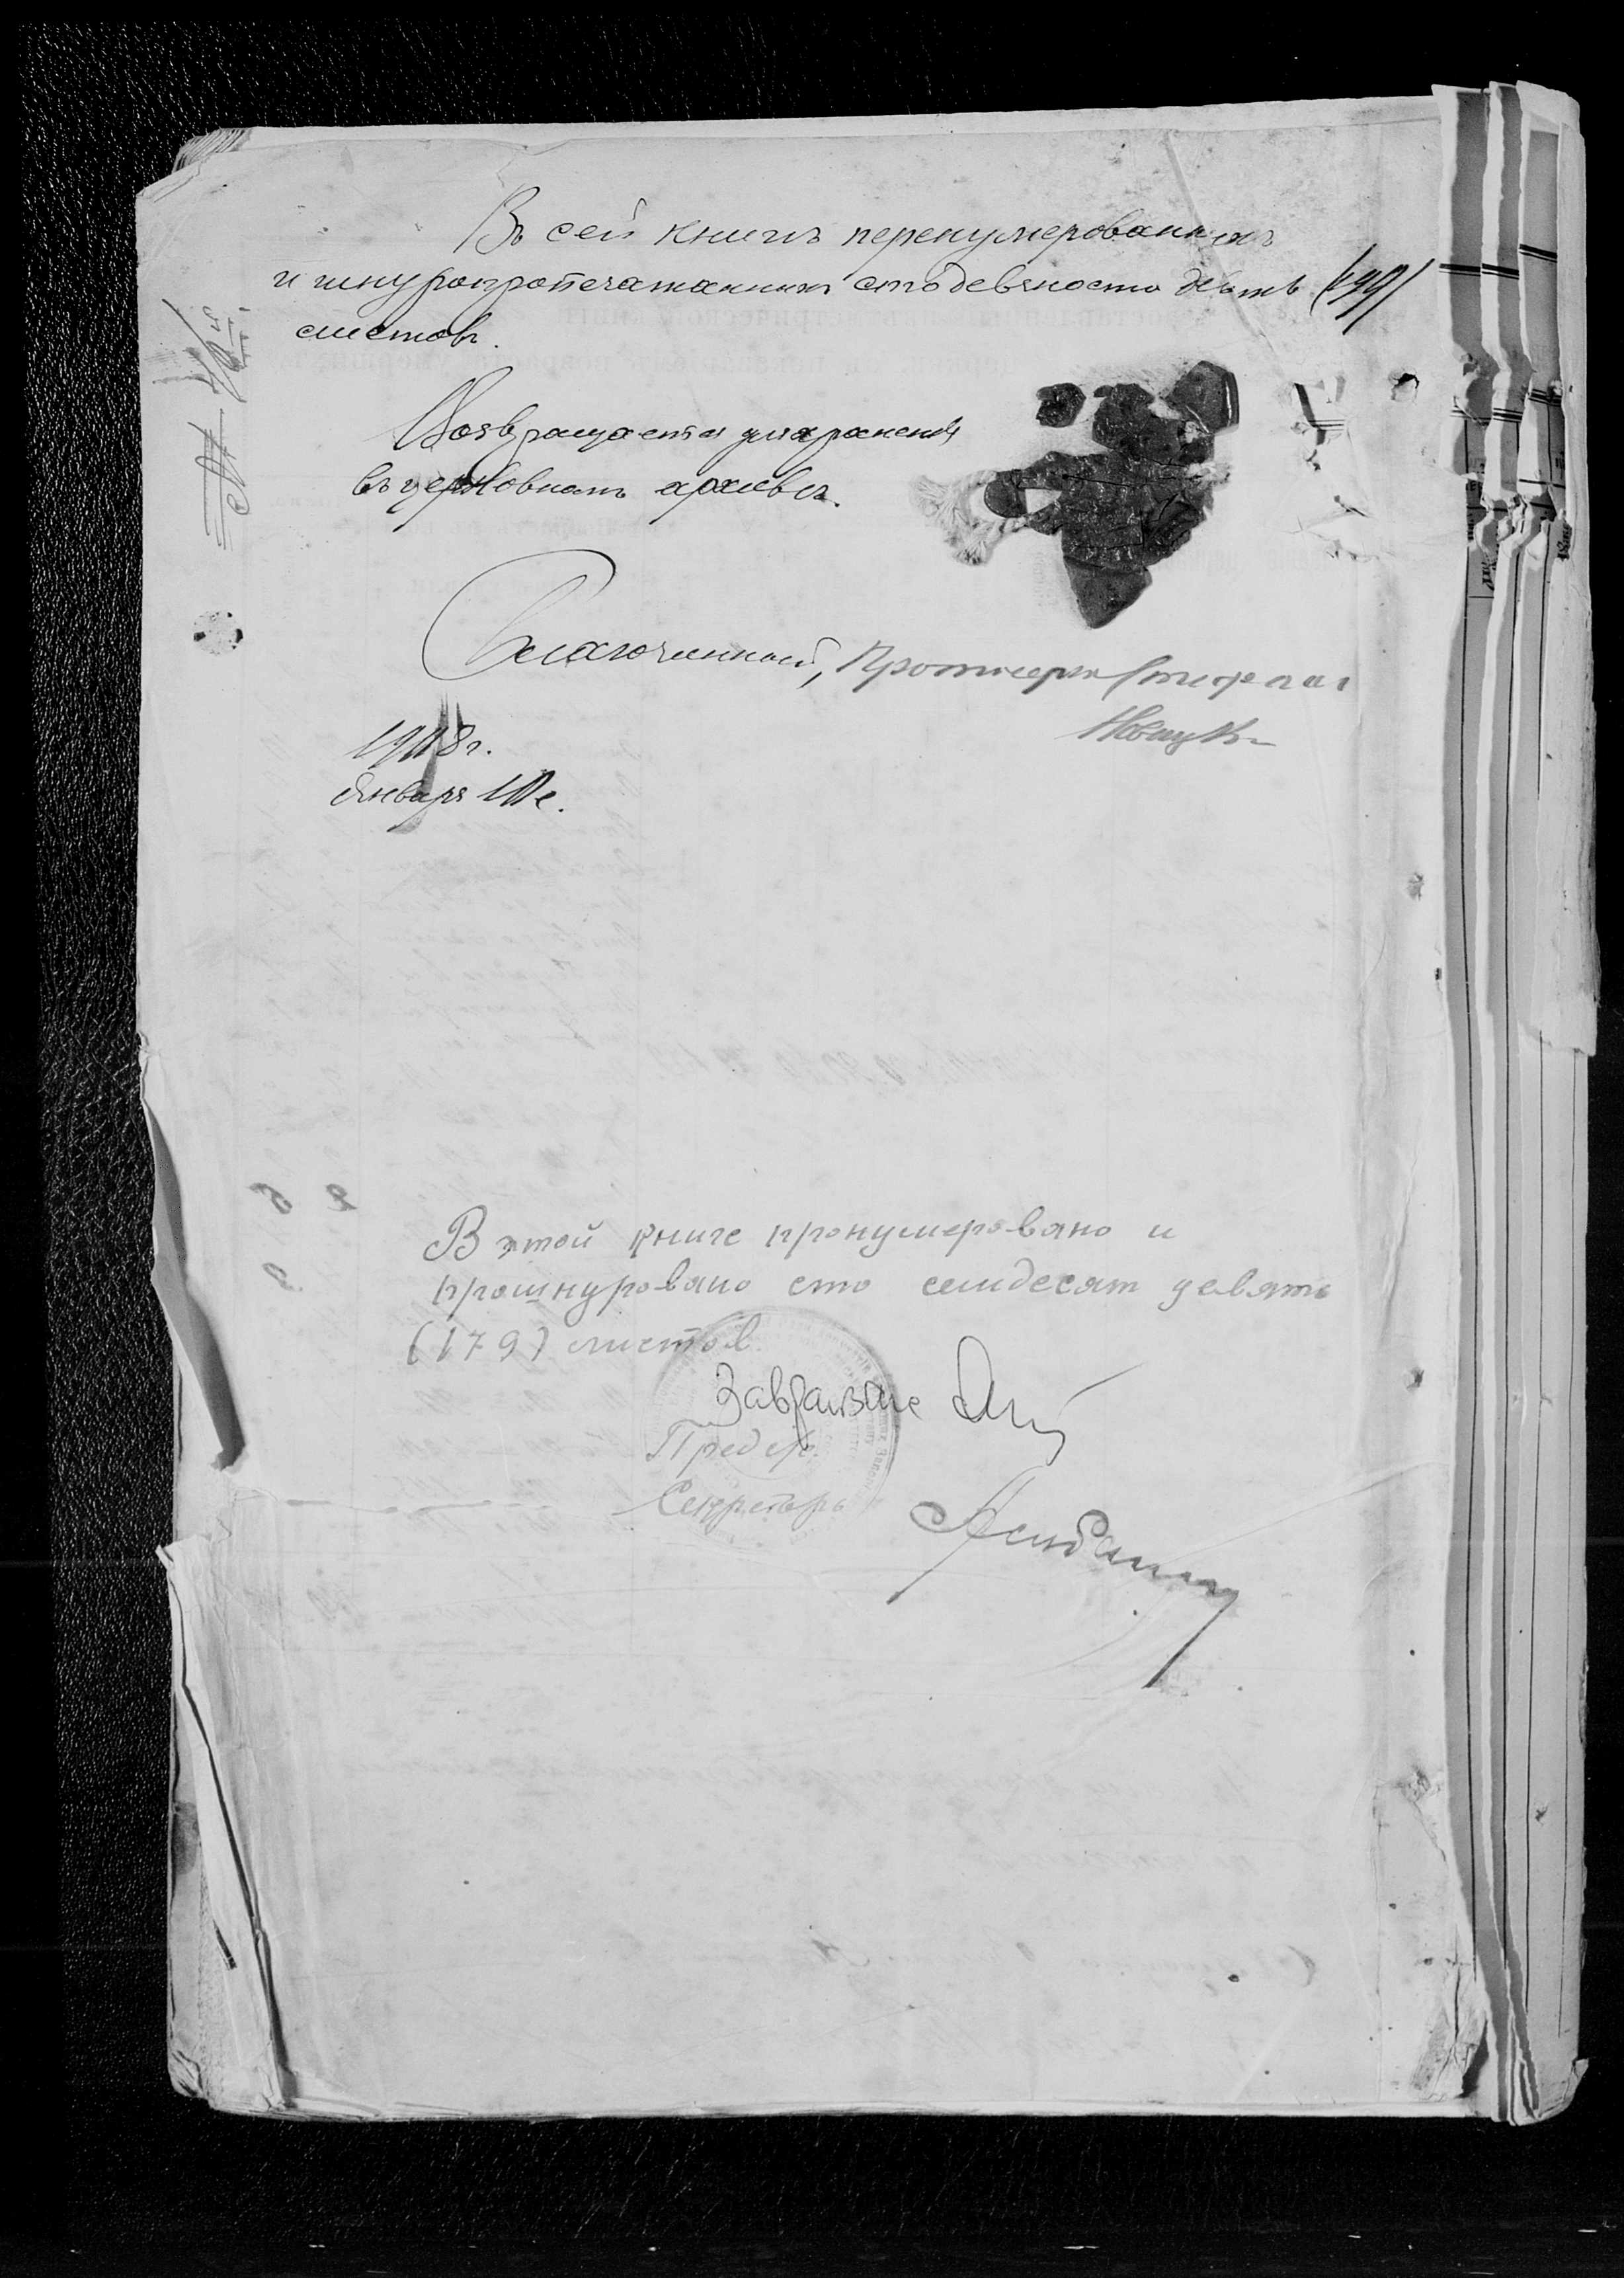 Въ сей книгѣ перенумерованныхъ
и шнуропропечатанныхъ сто девяносто девять /199/
листовъ.
Возвращается для храненія
въ церковномъ архивѣ.
Благочинный, Протоіерей Стефанъ
Новицк
1918 г.
Января
В этой книге пронумеровано и
прошнуровано сто семдесят девять
(179) листов.
Завзагзаге
Предс.
Секретарь